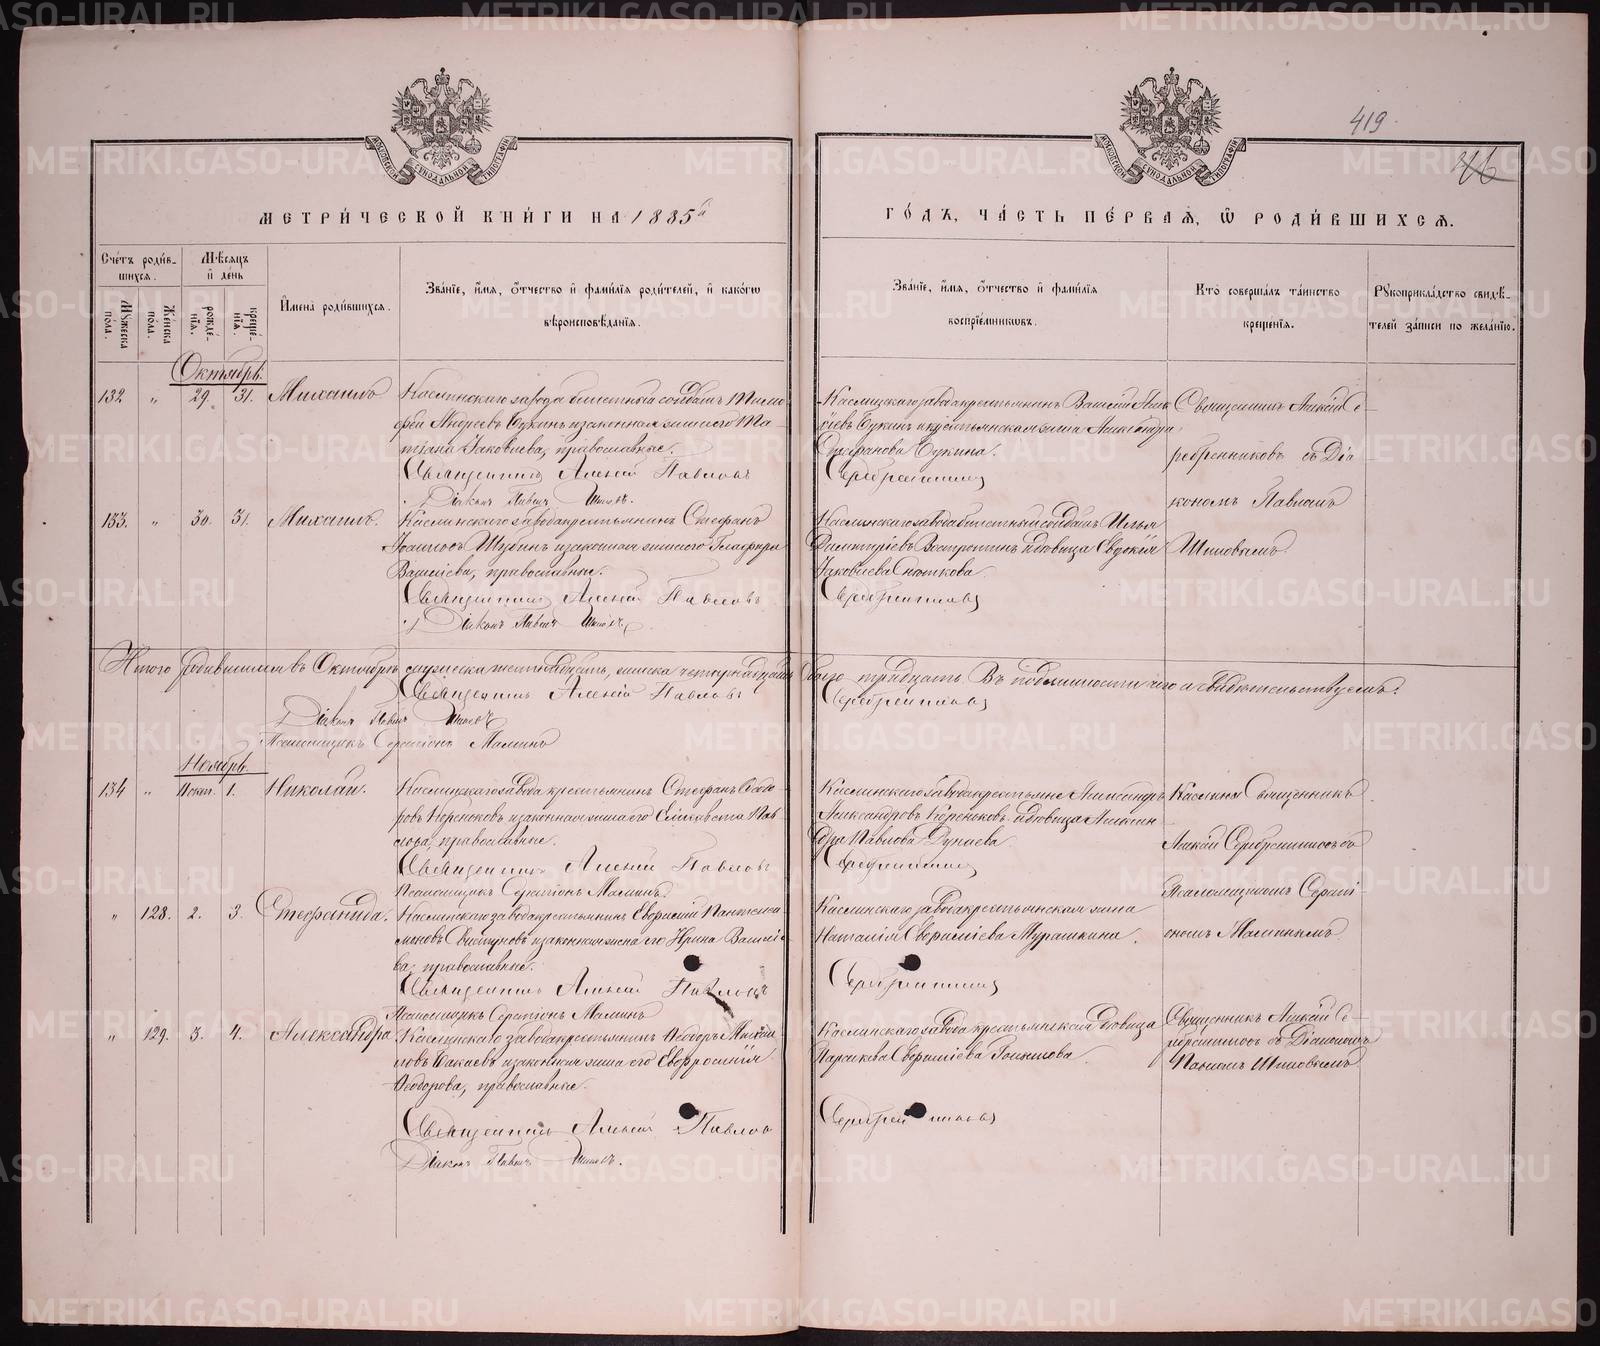 419
46
МЕТРИЧЕСКОЙ КНИГИ НА 1885й
ГОДЪ, ЧАСТЬ ПЕРВАЯ, Ѿ РОДИВШИХСЯ.
Счетъ родив-
шихся.
Мужеска пола.
Женска пола.
Мѣсяцъ и день
рожде-
нія.
креще-
нія.
Имена родившихся.
Званіе, имя, отчество и фамилія родителей, и какогѡ
вѣроисповѣданія.
Званіе, имя, отчество и фамилія
воспріемниковъ.
Кто совершалъ таинство
крещенія.
Рукоприкладство свидѣ-
телей записи по желанію.
Октябрь.
132 „ 29. 31. Михаилъ
Каслинскаго завода билетный солдатъ Тимо-
фей Андреевъ Сукинъ и законная жена его Та-
тіана Іаковлева, православные.
Священникъ Алексій Павловъ
Діаконъ Павелъ Шиловъ.
Каслинскаго завода крестьянинъ Василій
Сукинъ и крестьянская жена Александра
Стефанова Сукина.
Серебренниковъ
Священникъ Алексій Се-
ребренниковъ съ Діа
кономъ Павломъ
Шиловымъ.
133. „ 30. 31. Михаилъ.
Каслинскаго завода крестьянинъ Стефанъ
Іоанновъ Шубинъ и законная жена его Глафира
Василіева, православные.
Священникъ Алексій Павловъ
Діаконъ Павелъ Шиловъ.
Каслинскаго завода билетный солдатъ Илья
Димитріевъ Востротинъ и вдовица Евдокія
Іаковлева Снюткова.
Серебренниковъ
Итого родившихся въ Октябрѣ мужеска шестнадцать, женска четырнадцать обоего тридцать. Въ подлинности чего и свидѣтельствуемъ:
Священникъ Алексій Павловъ
Серебренниковъ
Діаконъ Павелъ Шиловъ
Псаломщикъ Серапіонъ Маминъ
Ноябрь.
134 „ 1. Николай.
Каслинскаго завода крестьянинъ Стефанъ Ѳеодо-
ровъ Кореньковъ и законная жена его Елисавета Пав-
лова, православные.
Священникъ Алексій Павловъ
Псаломщикъ Серапіонъ Маминъ
Каслинскаго завода крестьяне Александръ
Александровъ Кореньковъ и вдовица Алексан
дра Павлова Дунаева.
Серебренниковъ
Священникъ
Алексій Серебренниковъ съ
Псаломщикомъ Серапі-
ономъ Маминымъ.
„ 128. 2. 3. Стефанида.
Каслинскаго завода крестьянинъ Евфимій Пантелеи-
моновъ Свистуновъ и законная жена его Ирина Василіе-
ва, православные.
Священникъ Алексій Павловъ
Псаломщикъ Серапіонъ Маминъ
Каслинскаго завода крестьянская жена
Наталія Мурашкина.
Серебренниковъ
„ 129. 3. 4. Александра.
Каслинскаго завода крестьянинъ Ѳеодоръ Михаи-
ловъ и законная жена его Евфросинія
Ѳеодорова, православные.
Священникъ Алексій Павловъ
Діаконъ Павелъ Шиловъ.
Каслинскаго завода крестьянская вдовица
Параскева
Серебренниковъ
Священникъ Алексій Се-
ребренниковъ съ Діакономъ
Павломъ Шиловымъ
METRIKI.GASO-URAL.RU